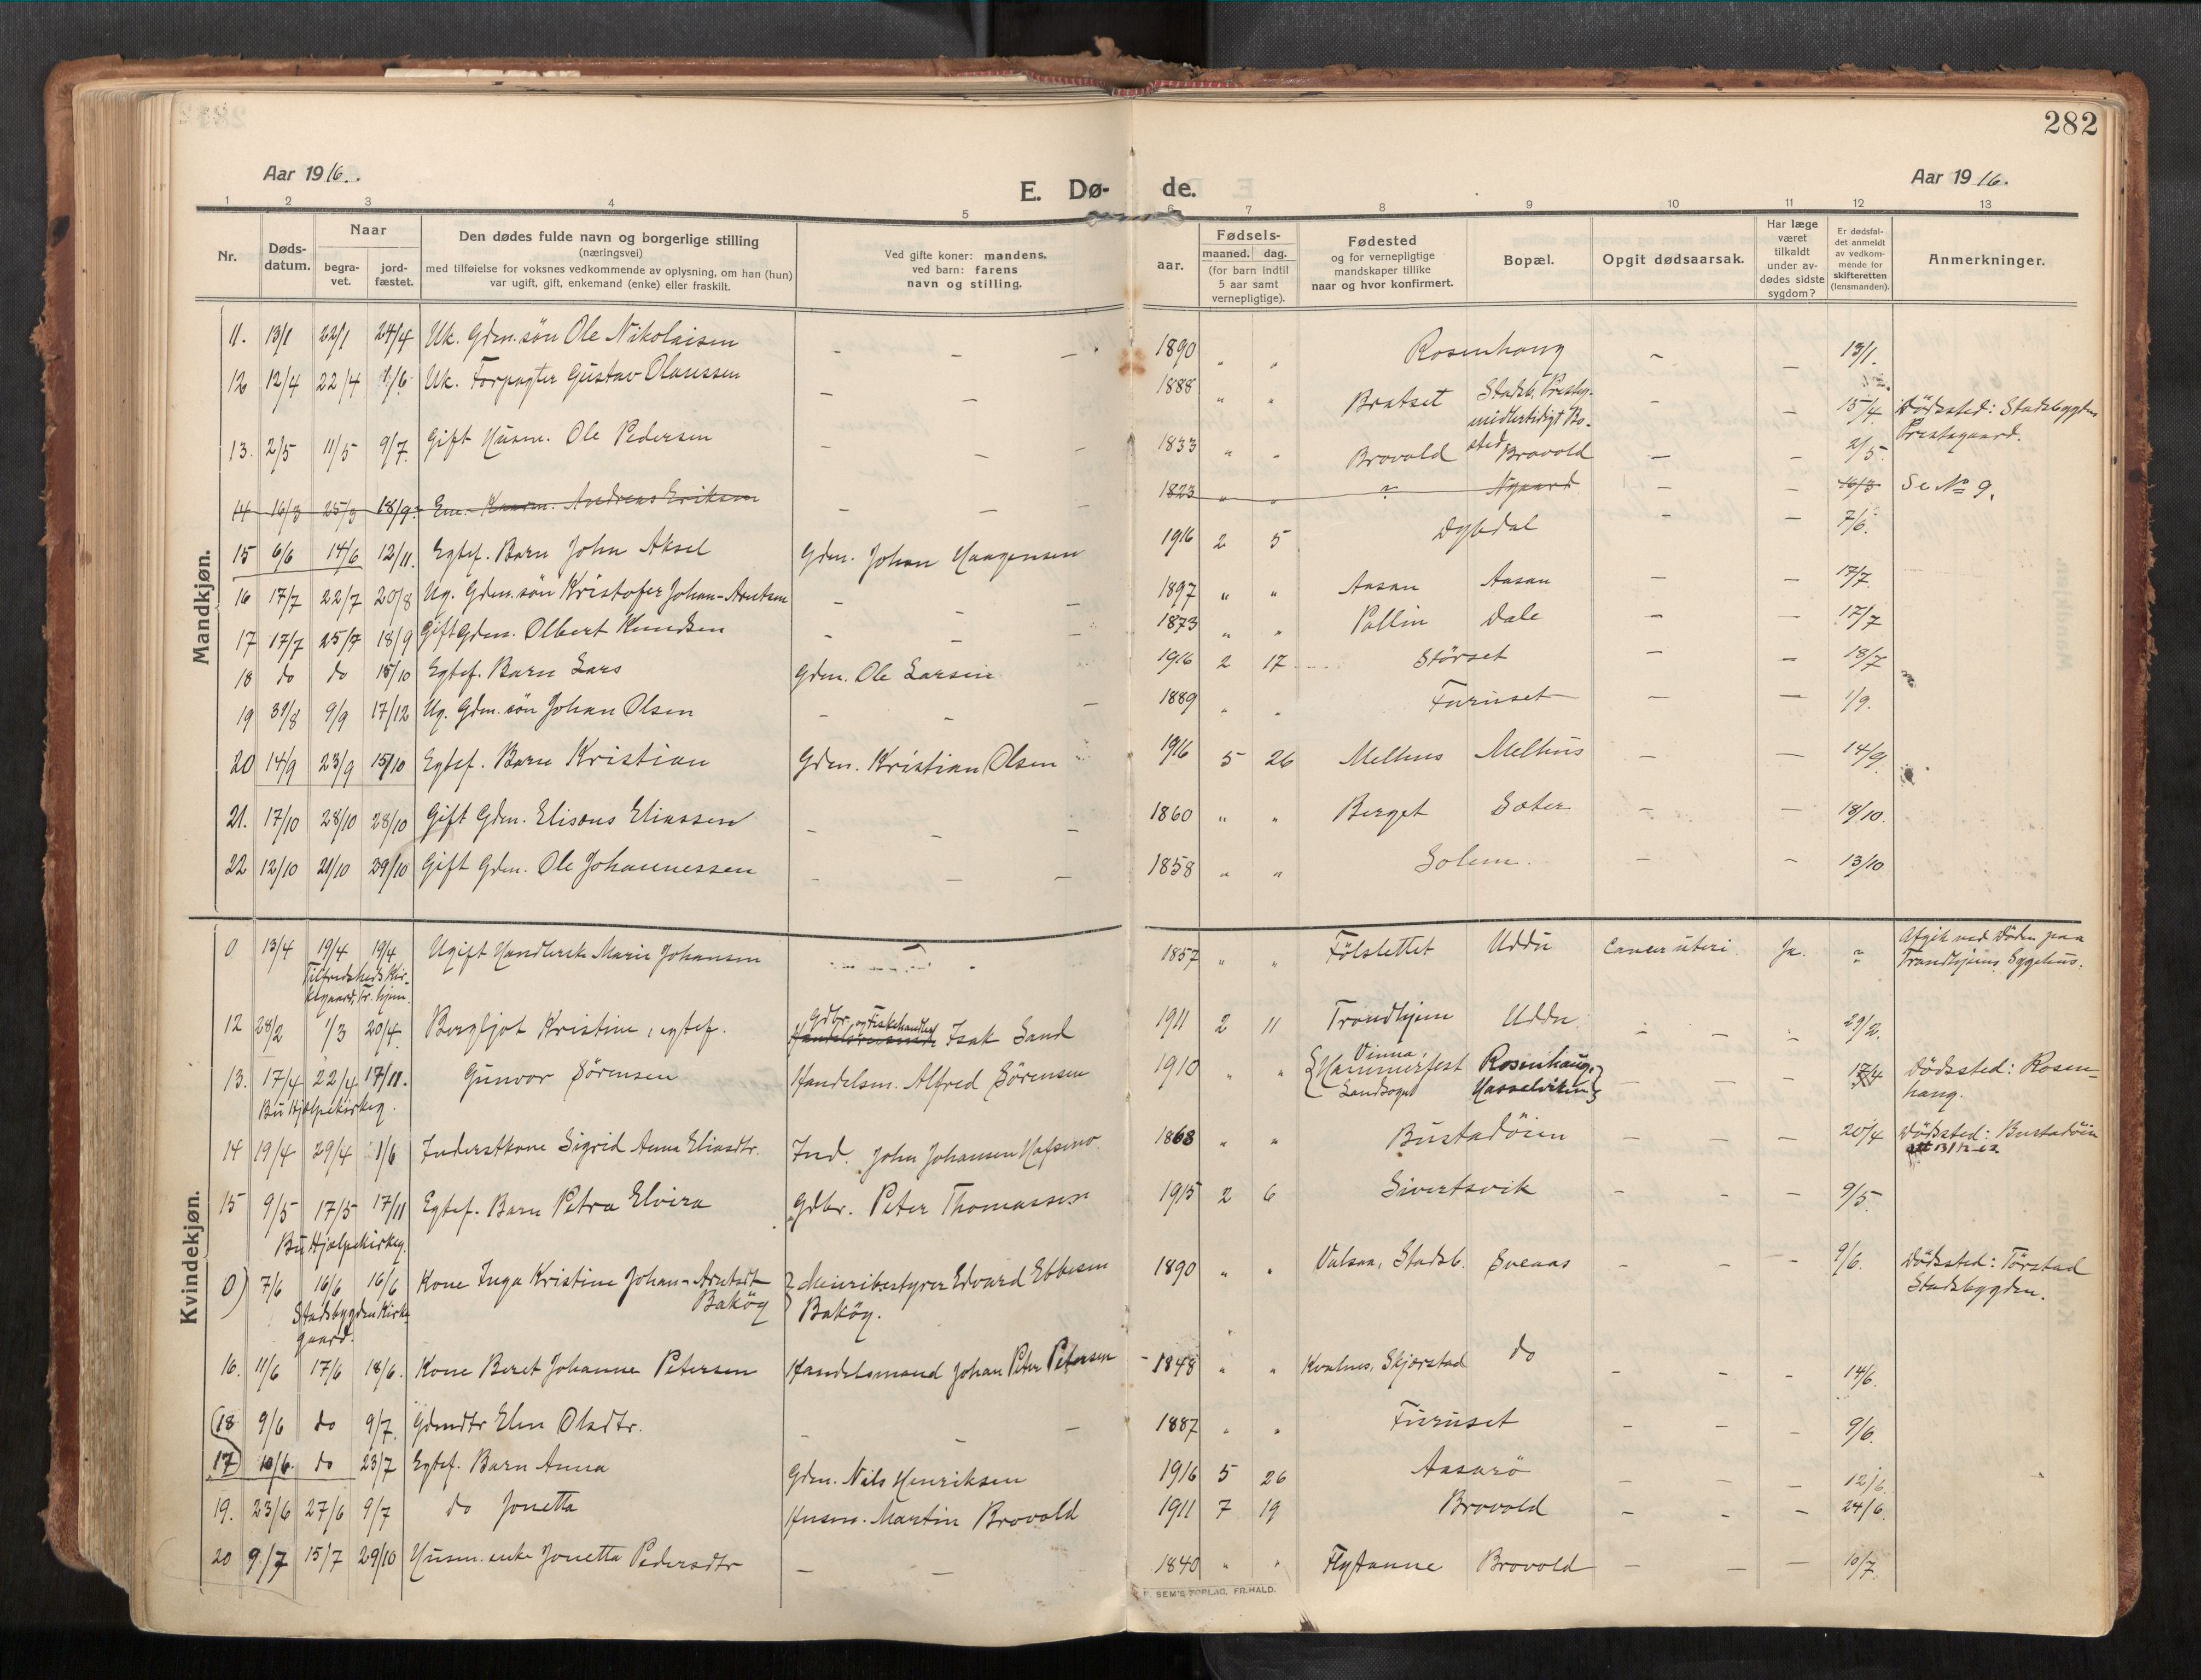 282
Aar 1916.
E. Dø-
de.
Aar 1916.
1 2 3 4 5 6 7 8 9 10 11 12 13
Nr.
Døds-
datum.
Naar
begra-
vet.
jord-
fæstet.
Den dødes fulde navn og borgerlige stilling
(næringsvei)
med tilføielse for voksnes vedkommende av oplysning, om han (hun)
var ugift, gift, enkemand (enke) eller fraskilt.
Ved gifte koner: mandens,
ved barn: farens
navn og stilling.
Fødsels-
aar.
maaned. dag.
(for barn indtil
5 aar samt
vernepligtige).
Fødested
og for vernepligtige
mandskaper tillike
naar og hvor konfirmert.
Bopæl.
Opgit dødsaarsak.
Har læge
været
tilkaldt
under av-
dødes sidste
sygdom?
Er dødsfal-
det anmeldt
av vedkom-
mende for
skifteretten
(lensmanden).
Anmerkninger.
Mandkjøn.
11. 13/1 22/1 24/4 Uk. Gdm. søn Ole Nikolaisen – – – 1890 " " Rosenhaug – – 13/1.
12 12/4 22/4 1/6 Uk. Forpagter Gustav Olaussen – – 1888 " " Bratset Stadsb. Prestg. – – 15/4. Dödssted: Stadsbygden
midlertidigt Bo-
sted
Prestegaard.
13. 2/5 11/5 9/7. Gift Husm. Ole Pedersen – – – 1833 " " Brovold Brovold – – 2/5.
14 16/3 25/3 18/9. Em. Kaarm. Andreas Eriksen – – – 1823 " " ? Nygaard – – 16/3 Se No 9.
15 6/6 14/6 12/11. Egtef. Barn John Aksel Gdm. Johan Haagensen 1916 2 5 Dybdal – – 7/6.
16 17/7 22/7 20/8 Ug. Gdm. søn Kristofer Johan-Arntsen – – – 1897 " " Aasan Aasan – – 17/7.
17 17/7 25/7 18/9 Gift Gdm. Olbert Knudsen – – – 1873 " " Pallin Dale – – 17/7
18 do do 15/10 Egtef. Barn Lars Gdm. Ole Larsen 1916 2 17 Störset – – 18/7
19 31/8 9/9 17/12 Ug. Gdm. søn Johan Olsen – – – 1889 " " Furuset – – 1/9.
20 14/9 23/9 15/10 Egtef. Barn Kristian Gdm. Kristian Olsen 1916 5 26 Melhus Melhus – – 14/9.
21. 17/10 28/10 28/10 Gift Gdm. Elisæus Eliassen – – – 1860 " " Berget Sæter – – 18/10.
22 12/10 21/10 29/10 Gift Gdm. Ole Johannessen – – – 1858 " " Solem. – – 13/10
Kvindekjøn.
0 13/4 19/4 19/4 Ugift Handlersk Marie Johansen – 1857 " " Fölstettet Uddu Cancer uteri. Ja. ? Afgik ved Döden paa
Tilfredsheds Kir-
kegaard, Tr. hjem.
Trondhjems Sygehus.
12 28/2 1/3 20/4. Bergljot Kristine, egtef. Gdbr. og Fiskehandler
Isak Sand 1911 2 11 Trondhjem Uddu – – – 29/2.
13. 17/4 22/4 17/11. Gunvor Sörensen Handelsm. Alfred Sörensen 1910 " " Vinna,
Hammerfest
Landsogn
Rosenhaug,
Hasselviken – – – 17/4 Dödssted: Rosen-
haug.
Bu Hjælpekirkeg.
14 19/4 29/4 1/6 Inderstkone Sigrid Anna Eliasdtr. Ind. John Johansen Hafsmo. 1868 " " Bustadöien – – – 20/4 Dödssted: Bustadöien
15 9/5 17/5 17/11 Egtef. Barn Petra Elvira Gdbr. Peter Thomassen 1915 2 6 Sivertsvik – – – 9/5.
Bu Hjælpekirkeg.
0) 7/6 16/6 16/6 Kone Inga Kristine Johan-Arntsdt
Baköy
Meieribestyrer Edvard Ebbesen
Baköy. 1890 " " Valsaa, Stadsb. Sveaas – – – 9/6. Dödssted: Törstad
Stadsbygden.
Stadsbygden Kirke
gaard.
16. 11/6 17/6 18/6. Kone Beret Johanne Petersen Handelsmand Johan Peter Petersen 1848 " " Kvalnes, Skjørstad do – – – 14/6.
18 9/6 do 9/7. Gdmdtr Elen Olsdtr. – – – 1887 " " Furuset – – – 9/6.
17 10/6. do 23/7 Egtef. Barn Anna Gdm. Nils Henriksen 1916 5 26 Aasarö – – – 12/6.
19. 23/6 27/6 9/7 do Jonetta Husm. Martin Brovold 1911 7 19 Brovold – – – 24/6.
20 9/7 15/7 29/10 Husm. enke Jonetta Pedersdtr – – 1840 " " Flytanne Brovold – – – 10/7.
SEM'S FORLAG, FR.HALD.